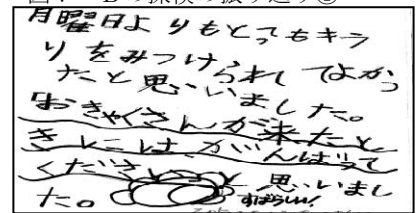 月曜日よりもとってもキラ
りをみつけられてよかっ
たと思いました。
おきゃくさんが来たと
きには、がんばって
くださ 思いまし
た。
すばらしい!